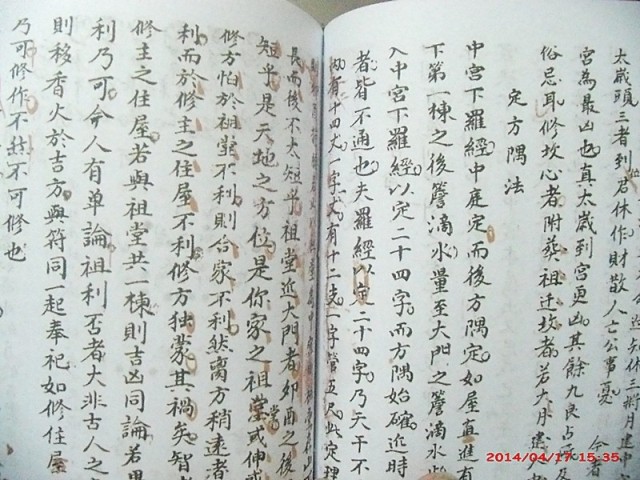 太歲頭三者到君休作財散人亡公事憂
宮為最凶也真太歲到宮更凶其餘九良占
俗忌耳修坎心者附葬祖迁坟者若大月建
定方隅法
中宮下羅經中庭定而後方隅定如屋直進有
下第一棟之後簷滴水量至大門之簷滴水
入中宮下羅經以定二十四字而方隅始確近時
者皆不通也夫羅經以定二十四字乃天干不
有十四丈一字丈有十二支一字管五尺此定理
長而後不太短乎祖堂近大門者卯酉之後
短乎是天地之方位是你家之祖堂或伸或
修方怕於祖堂不利則合家不利然离方稍遠者
利而於修主之住屋不利修方独蒙其禍矣智者
修主之住屋若與祖堂共一棟則吉凶同論若異
利乃可今人有单論祖利否者大非古人之
則移香火於吉方與符同一起奉祀如修住屋
乃可修作不然不可修也
2014/04/17 15:35